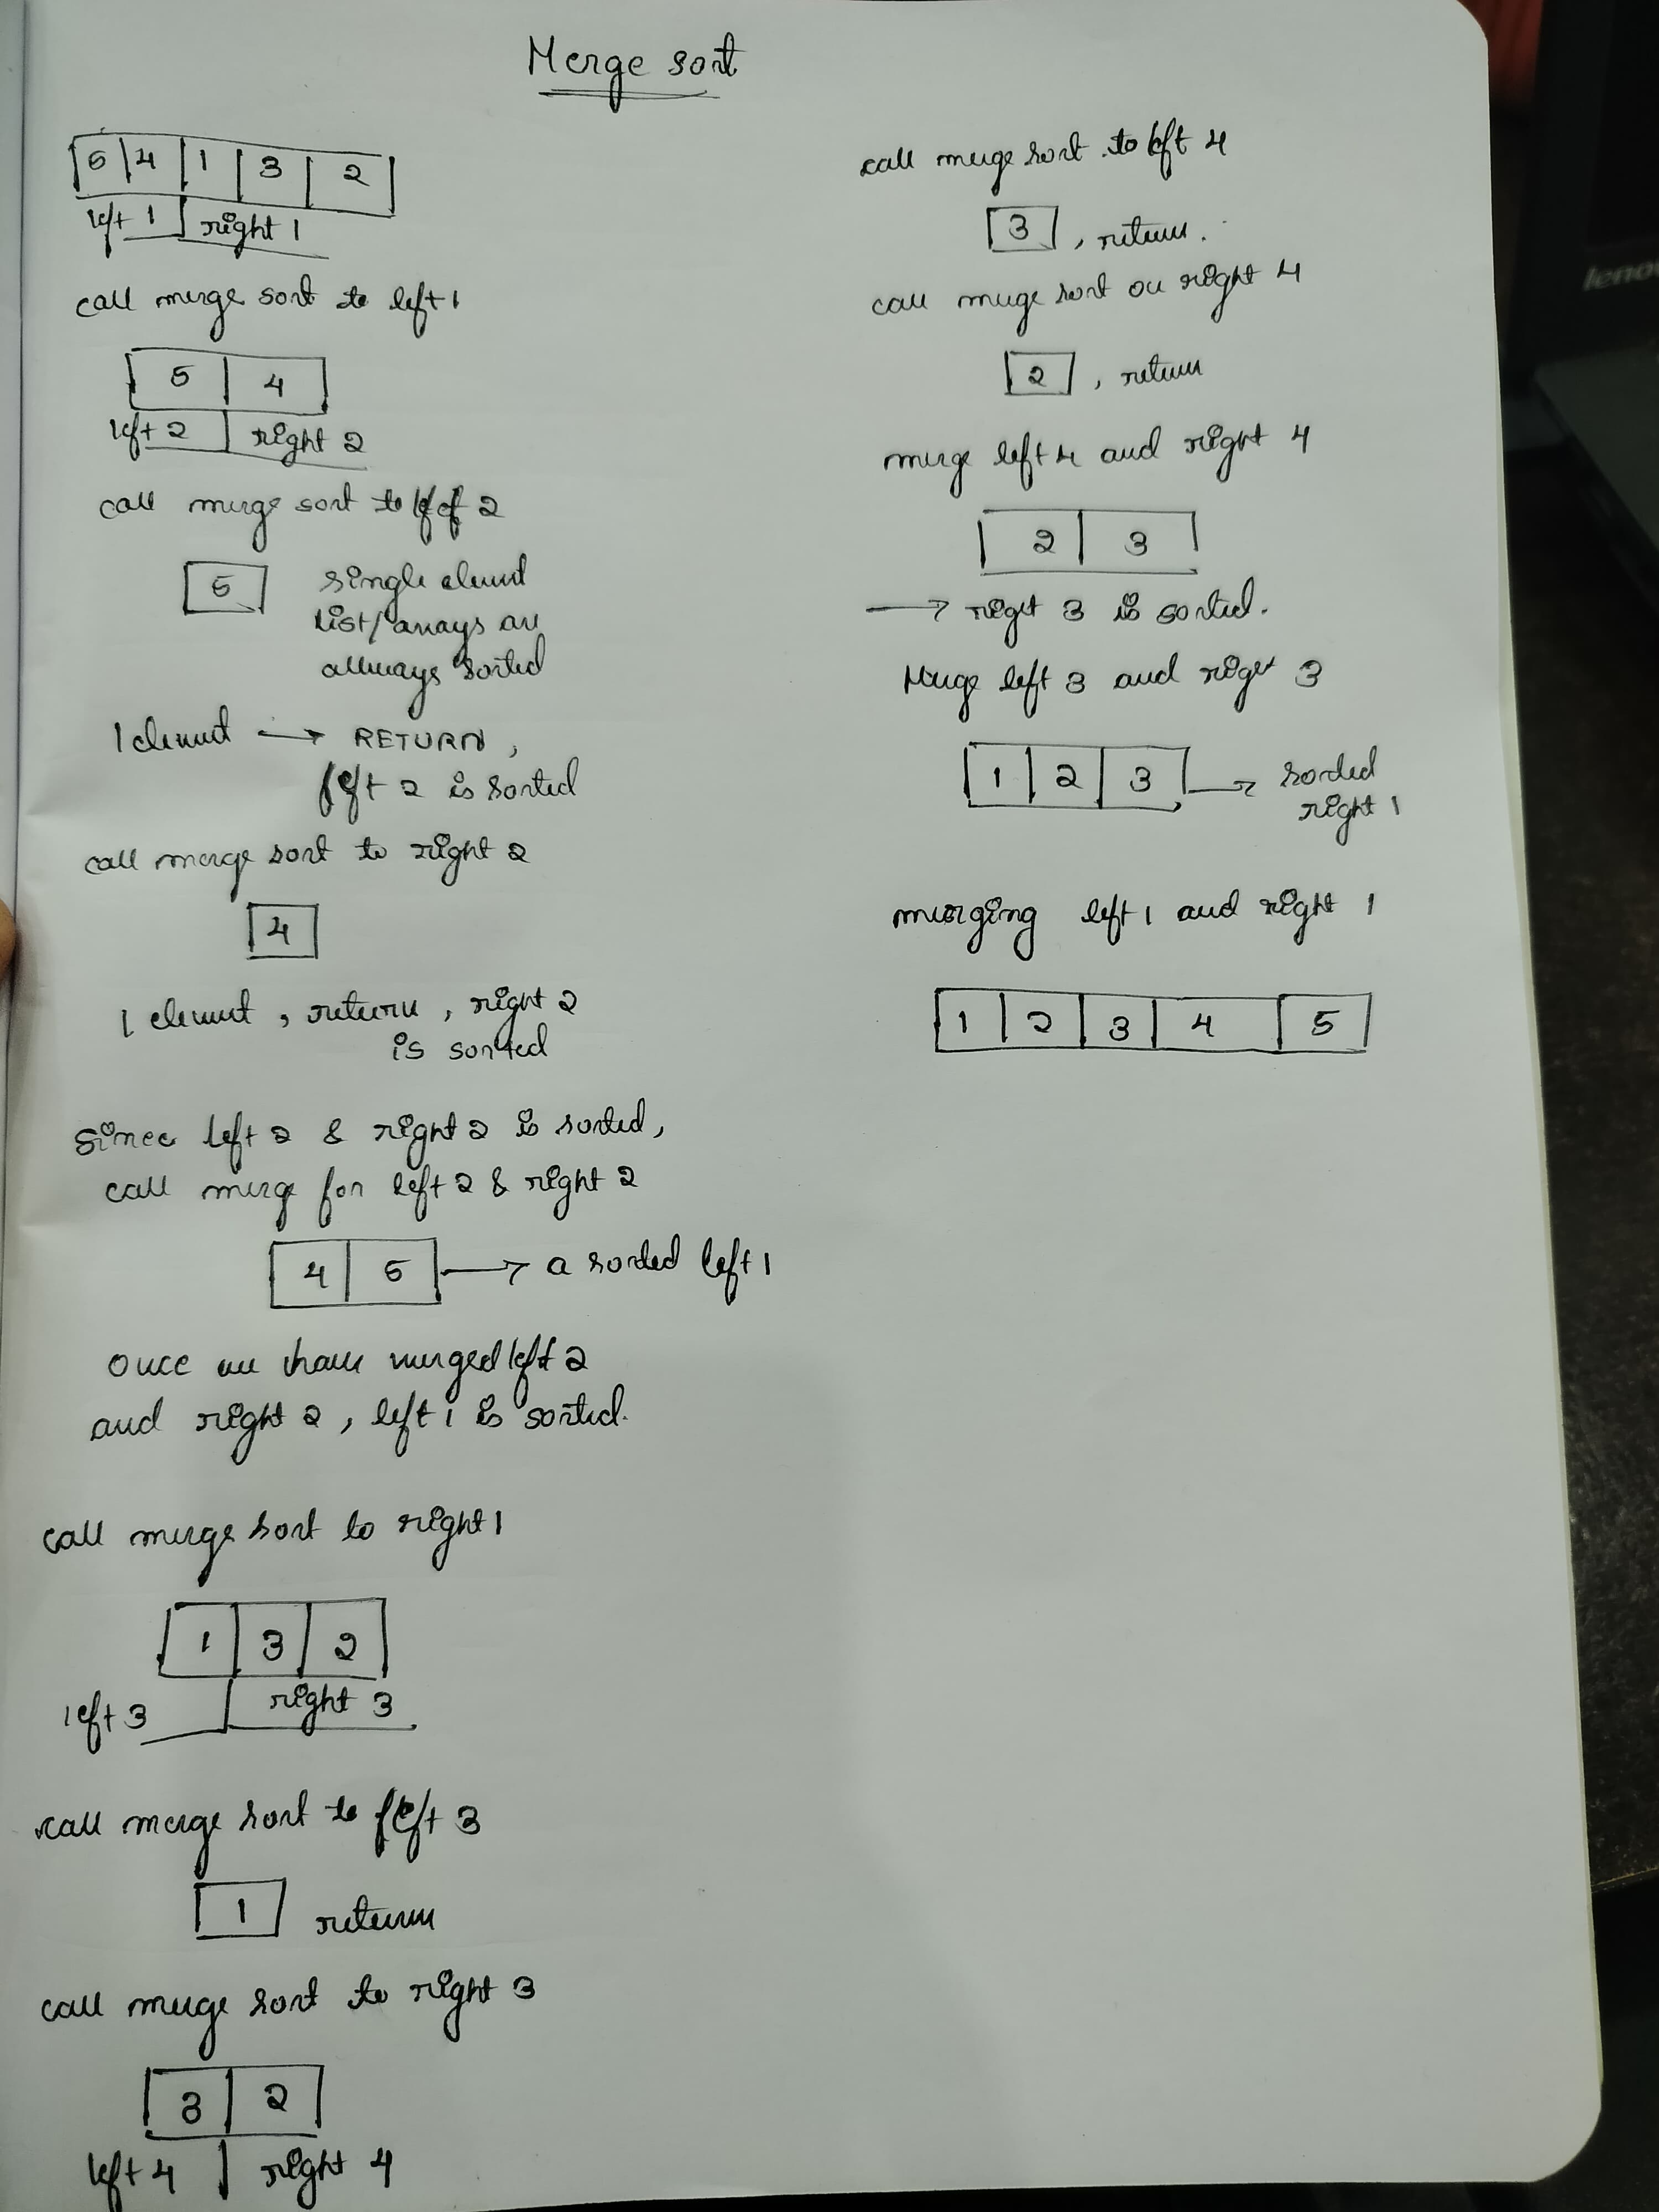 Merge sort
5 4 1 3 2
left 1 right 1
call merge sort to left 1
5 4
left 2 right 2
call merge sort to left 2
5 single element
list/arrays are
allways sorted
1 element → RETURN,
left 2 is sorted
call merge sort to right 2
4
1 element, return, right 2
is sorted
Since left 2 & right 2 is sorted,
call merge for left 2 & right 2
4 5 → a sorted left 1
Once we have merged left 2
and right 2, left 1 is sorted.
call merge sort to right 1
1 3 2
left 3 right 3
call merge sort to left 3
1 return
call merge sort to right 3
3 2
left 4 right 4
call merge sort to left 4
3, return.
call merge sort on right 4
2, return
merge left 4 and right 4
2 3
→ right 3 is sorted.
Merge left 3 and right 3
1 2 3 → sorted
right 1
merging left 1 and right 1
1 2 3 4 5
lenovo